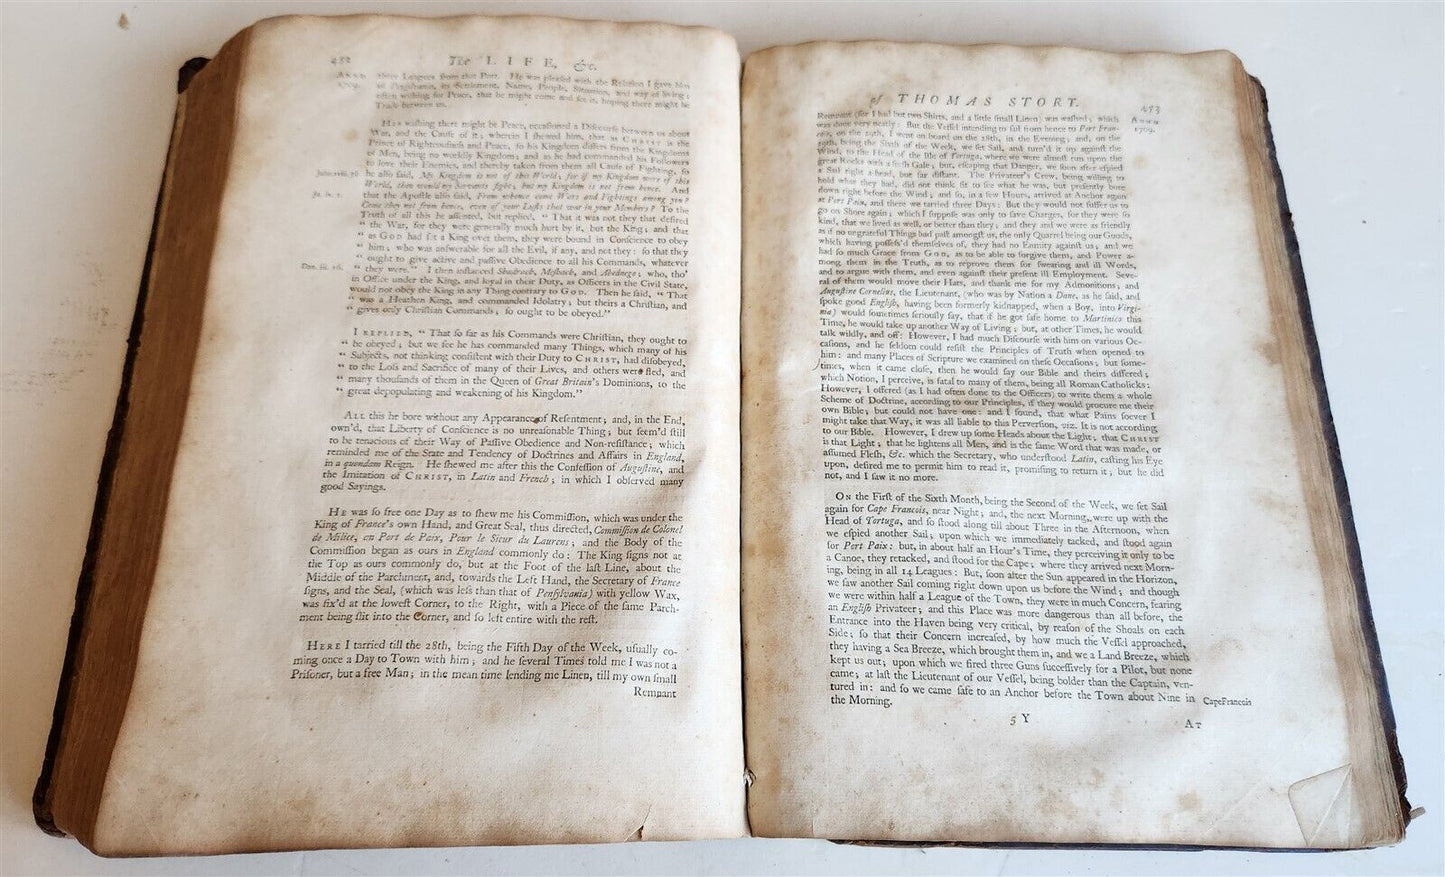 452
The LIFE, &c.
ANNO
1709.
three Leagues from that Port. He was pleased with the Relation I gave him
of Pensilvania, its Settlement, Name, People, Situation, and way of living;
often wishing for Peace, that he might come and see it, hoping there might be
Trade between us.
HIS wishing there might be Peace, occasioned a Discourse between us about
War, and the Cause of it; wherein I shewed him, that as CHRIST is the
Prince of Righteousness and Peace, so his Kingdom differs from the Kingdoms
of Men, being no worldly Kingdom; and as he had commanded his Followers
to love, their Enemies, and thereby taken from them all Cause of Fighting, so
John xviii. 36
he also said, My Kingdom is not of this World; for if my Kingdom were of this
World, then would my Servants fight; but my Kingdom is not from hence. And
Ja. iv. 1.
that the Apostle also said, From whence come Wars and Fightings among you?
Come they not from hence, even of your Lusts that war in your Members? To the
Truth of all this he assented, but replied, “ That it was not they that desired
“ the War, for they were generally much hurt by it, but the King; and that
“ as GOD had set a King over them, they were bound in Conscience to obey
“ him; who was answerable for all the Evil, if any, and not they: so that they
“ ought to give active and passive Obedience to all his Commands, whatever
Dan. iii. 16.
“ they were.” I then instanced Shadrach, Meshach, and Abednego; who, tho'
in Office under the King, and loyal in their Duty, as Officers in the Civil State,
would not obey the King in any Thing contrary to GOD. Then he said, “ That
“ was a Heathen King, and commanded Idolatry; but theirs a Christian, and
“ gives only Christian Commands; so ought to be obeyed.”
I REPLIED, “ That so far as his Commands were Christian, they ought to
“ be obeyed; but we see he has commanded many Things, which many of his
“ Subjects, not thinking consistent with their Duty to CHRIST, had disobeyed,
“ to the Loss and Sacrifice of many of their Lives, and others were fled, and
“ many thousands of them in the Queen of Great Britain's Dominions, to the
“ great depopulating and weakening of his Kingdom.”
ALL this he bore without any Appearance of Resentment; and, in the End,
own'd, that Liberty of Conscience is no unreasonable Thing; but seem'd still
to be tenacious of their Way of Passive Obedience and Non-resistance; which
reminded me of the State and Tendency of Doctrines and Affairs in England,
in a quondam Reign. He shewed me after this the Confession of Augustine, and
the Imitation of CHRIST, in Latin and French; in which I observed many
good Sayings.
HE was so free one Day as to shew me his Commission, which was under the
King of France's own Hand, and Great Seal, thus directed, Commission de Colonel
de Milice, en Port de Paix, Pour le Sieur du Laurens; and the Body of the
Commission began as ours in England commonly do: The King signs not at
the Top as ours commonly do, but at the Foot of the last Line, about the
Middle of the Parchment, and, towards the Left Hand, the Secretary of France
signs, and the Seal, (which was less than that of Pensylvania) with yellow Wax,
was fix'd at the lowest Corner, to the Right, with a Piece of the same Parch-
ment being slit into the Corner, and so left entire with the rest.
HERE I tarried till the 28th, being the Fifth Day of the Week, usually co-
ming once a Day to Town with him; and he several Times told me I was not a
Prisoner, but a free Man; in the mean time lending me Linen, till my own small
Remnant
of THOMAS STORY.
453
ANNO
1709.
Remnant (for I had but two Shirts, and a little small Linen) was washed; which
was done very neatly: But the Vessel intending to sail from hence to Port Fran-
cois, on the 29th, I went on board on the 28th, in the Evening; and, on the
29th, being the Sixth of the Week, we set Sail, and turn'd it up against the
Wind, to the Head of the Isle of Tortuga, where we were almost run upon the
great Rocks with a fresh Gale; but, escaping that Danger, we soon after spied
a Sail right a-head, but far distant. The Privateer's Crew, being willing to
hold what they had, did not think fit to see what he was, but presently bore
down right before the Wind; and so, in a few Hours, arrived at Anchor again
at Port Paix, and there we tarried three Days: But they would not suffer us to
go on Shore again; which I suppose was only to save Charges, for they were so
kind, that we lived as well, or better than they; and they and we were as friendly
as if no ungrateful Things had past amongst us, the only Quarrel being our Goods,
which having possess'd themselves of, they had no Enmity against us; and we
had so much Grace from GOD, as to be able to forgive them, and Power a-
mong them in the Truth, as to reprove them for swearing and ill Words,
and to argue with them, and even against their present ill Employment. Seve-
ral of them would move their Hats, and thank me for my Admonitions; and
Augustine Cornelius, the Lieutenant, (who was by Nation a Dane, as he said, and
spoke good English, having been formerly kidnapped, when a Boy, into Virgi-
nia) would sometimes seriously say, that if he got safe home to Martinico this
Time, he would take up another Way of Living; but, at other Times, he would
talk wildly, and off: However, I had much Discourse with him on various Oc-
casions, and he seldom could resist the Principles of Truth when opened to
him: and many Places of Scripture we examined on these Occasions; but some-
times, when it came close, then he would say our Bible and theirs differed;
which Notion, I perceive, is fatal to many of them, being all Roman Catholicks:
However, I offered (as I had often done to the Officers) to write them a whole
Scheme of Doctrine, according to our Principles, if they would procure me their
own Bible; but could not have one: and I found, that what Pains soever I
might take that Way, it was all liable to this Perversion, viz. It is not according
to our Bible. However, I drew up some Heads about the Light; that CHRIST
is that Light; that he lightens all Men, and is the same Word that was made, or
assumed Flesh, &c. which the Secretary, who understood Latin, casting his Eye
upon, desired me to permit him to read it, promising to return it; but he did
not, and I saw it no more.
ON the First of the Sixth Month, being the Second of the Week, we set Sail
again for Cape Francois, near Night; and, the next Morning, were up with the
Head of Tortuga, and so stood along till about Three in the Afternoon, when
we espied another Sail; upon which we immediately tacked, and stood again
for Port Paix: but, in about half an Hour's Time, they perceiving it only to be
a Canoe, they retacked, and stood for the Cape; where they arrived next Morn-
ing, being in all 14 Leagues: But, soon after the Sun appeared in the Horizon,
we saw another Sail coming right down upon us before the Wind; and though
we were within half a League of the Town, they were in much Concern, fearing
an English Privateer; and this Place was more dangerous than all before, the
Entrance into the Haven being very critical, by reason of the Shoals on each
Side; so that their Concern increased, by how much the Vessel approached,
they having a Sea Breeze, which brought them in, and we a Land Breeze, which
kept us out; upon which we fired three Guns successively for a Pilot, but none
came; at last the Lieutenant of our Vessel, being bolder than the Captain, ven-
tured in: and so we came safe to an Anchor before the Town about Nine in
Cape Francois
the Morning.
5 Y
AT